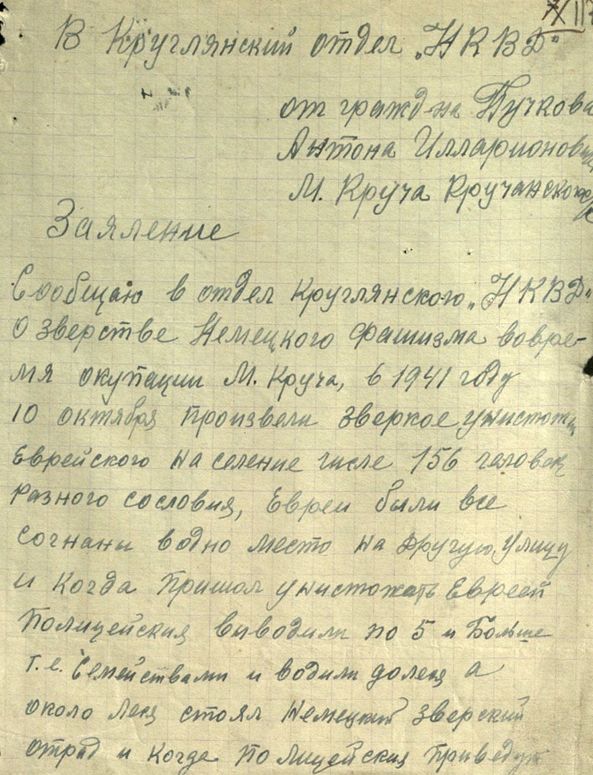 В Круглянский отдел „НКВД"
от гражд-на Пучкова
Антона Илларионович
М. Круча Кручанского
Заяление
Сообщаю в отдел Круглянского „НКВД"
о зверстве Немецкого фашизма вовре-
мя окупации М. Круча, в 1941 году
10 октября произвели зверкое унистожи
Еврейского на селение числе 156 человек
разного сословия, Евреи были все
согнаны водно место на другую улицу
и когда пришол унистожать Евреей
Полицейския выводили по 5 и больше
т.е. Семействами и водили
а
около стоял немецкий зверский
отряд и когда По лицейския приведут